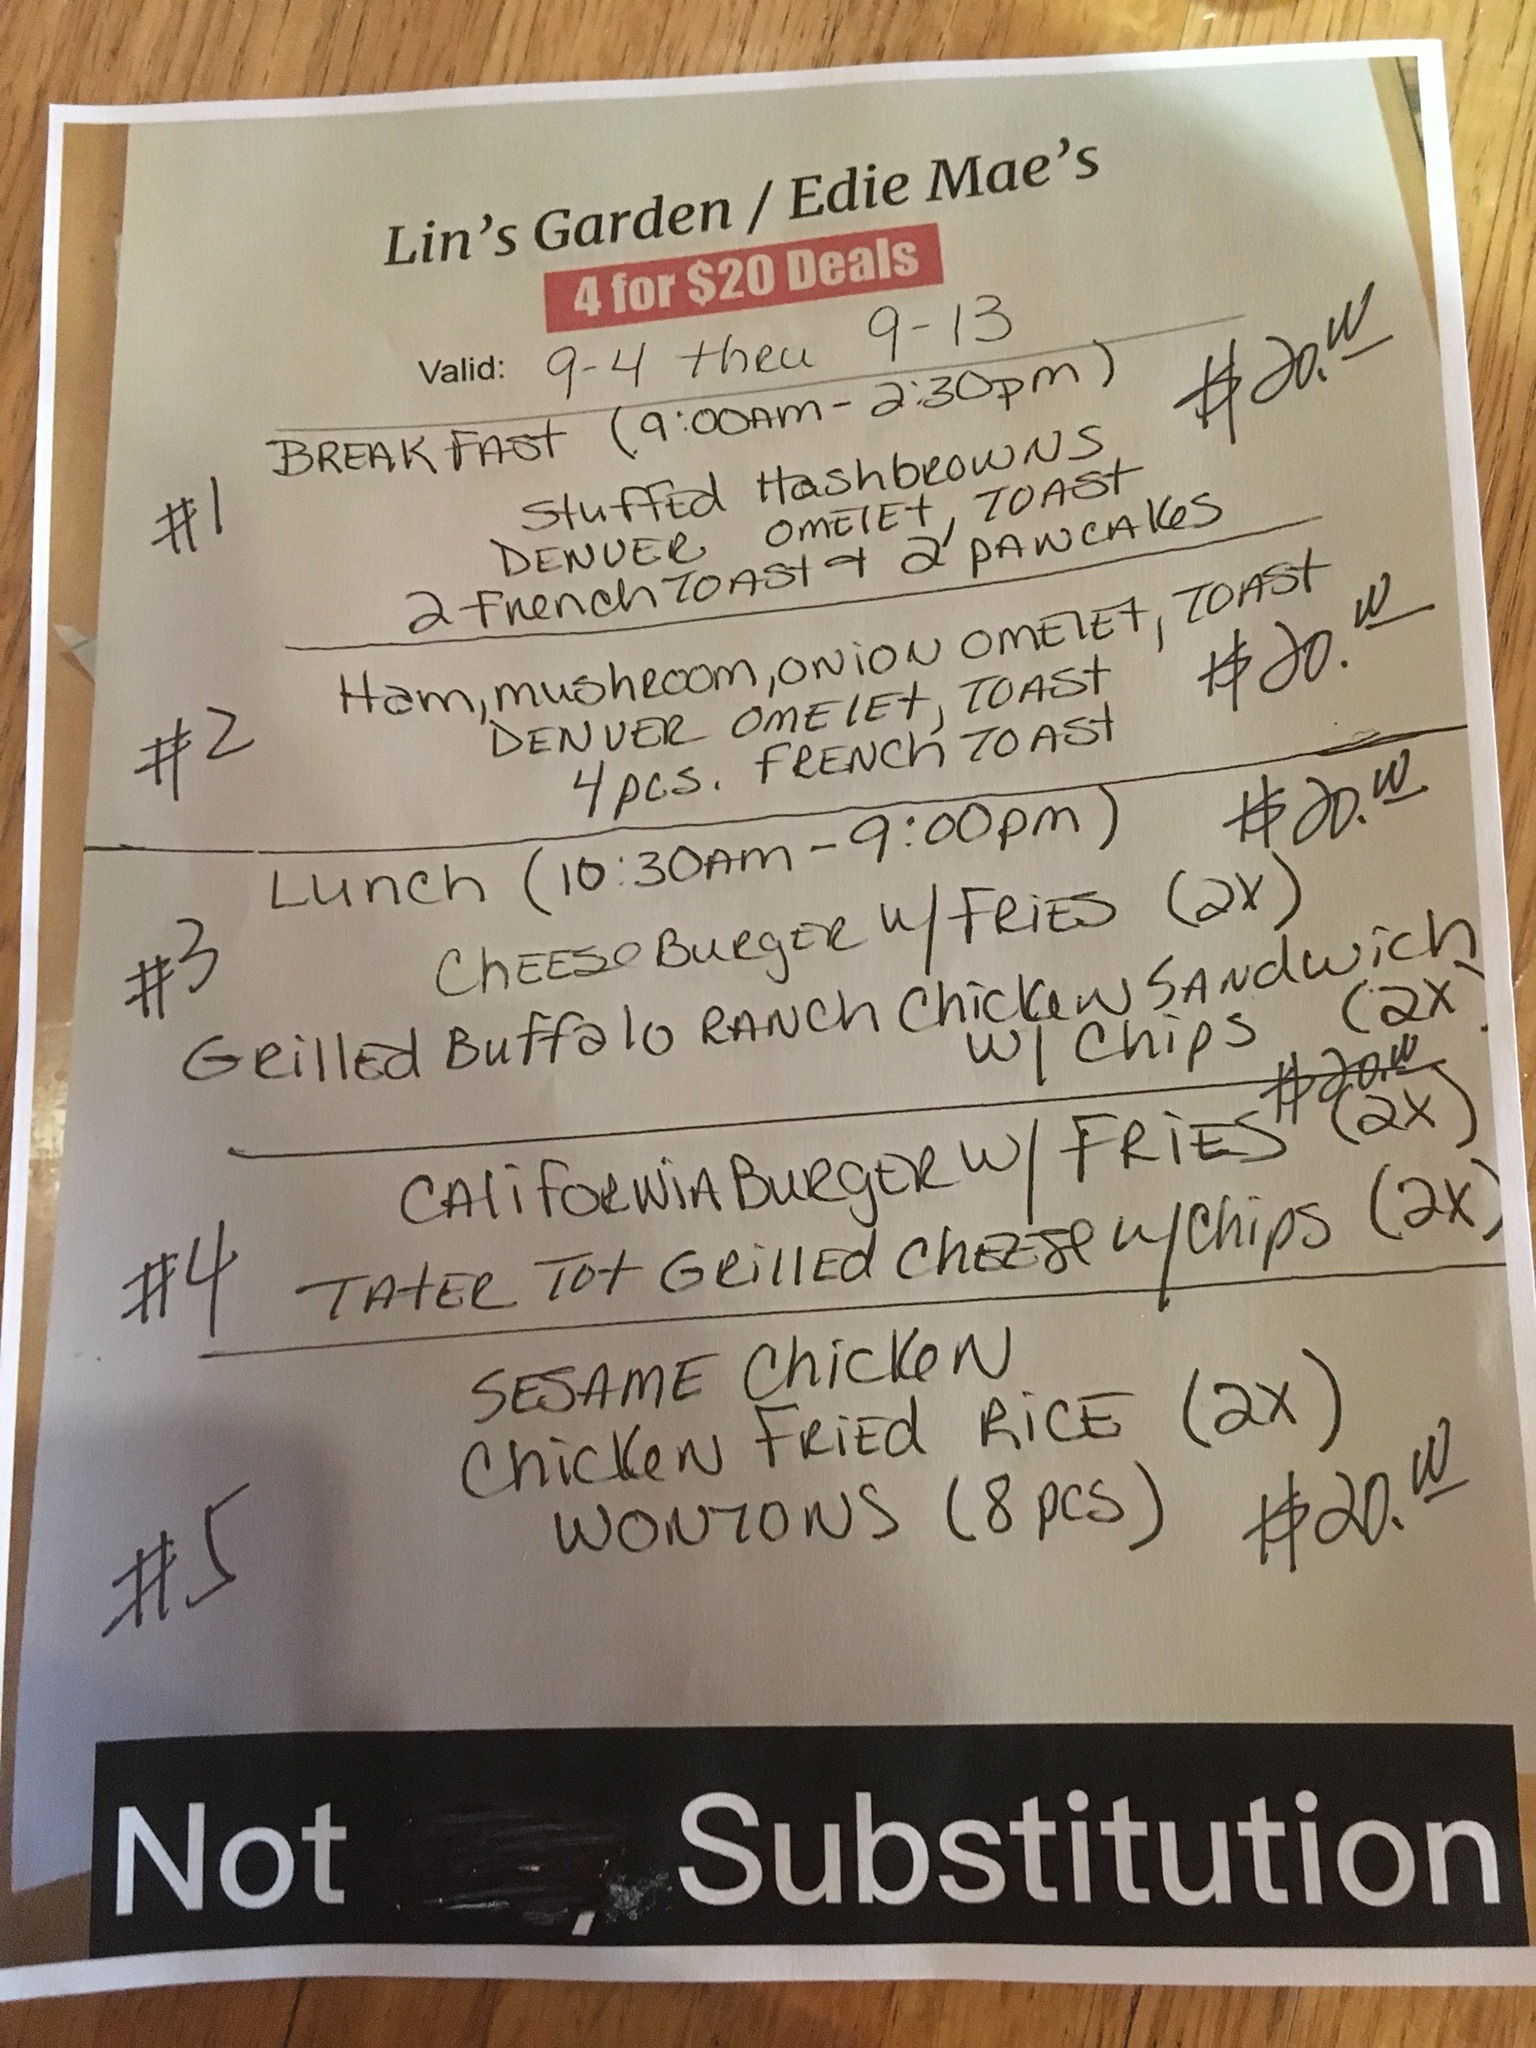 Lin's Garden / Edie Mae's
4 for $20 Deals
Valid: 9-4 thru 9-13
BREAKFAST (9:00AM - 2:30pm) $20.00
#1 Stuffed Hashbrowns
DENVER OMELET, TOAST
2 French TOAST & 2 PANCAKES
Ham, mushroom, ONION OMELET, TOAST $20.00
#2 DENVER OMELET, TOAST
4 pcs. FRENCH TOAST
Lunch (10:30AM - 9:00pm) $20.00
#3 CHEESEBURGER w/ FRIES (2X)
Grilled Buffalo RANCH Chicken SANDwich
w/ Chips (2X)
$20.00
#4 CALIFORNIA BURGER w/ FRIES (2X)
TATER TOT GRILLED CHEESE w/ Chips (2X)
SESAME Chicken
#5 Chicken FRIED RICE (2X)
WONTONS (8 pcs) $20.00
Not Substitution